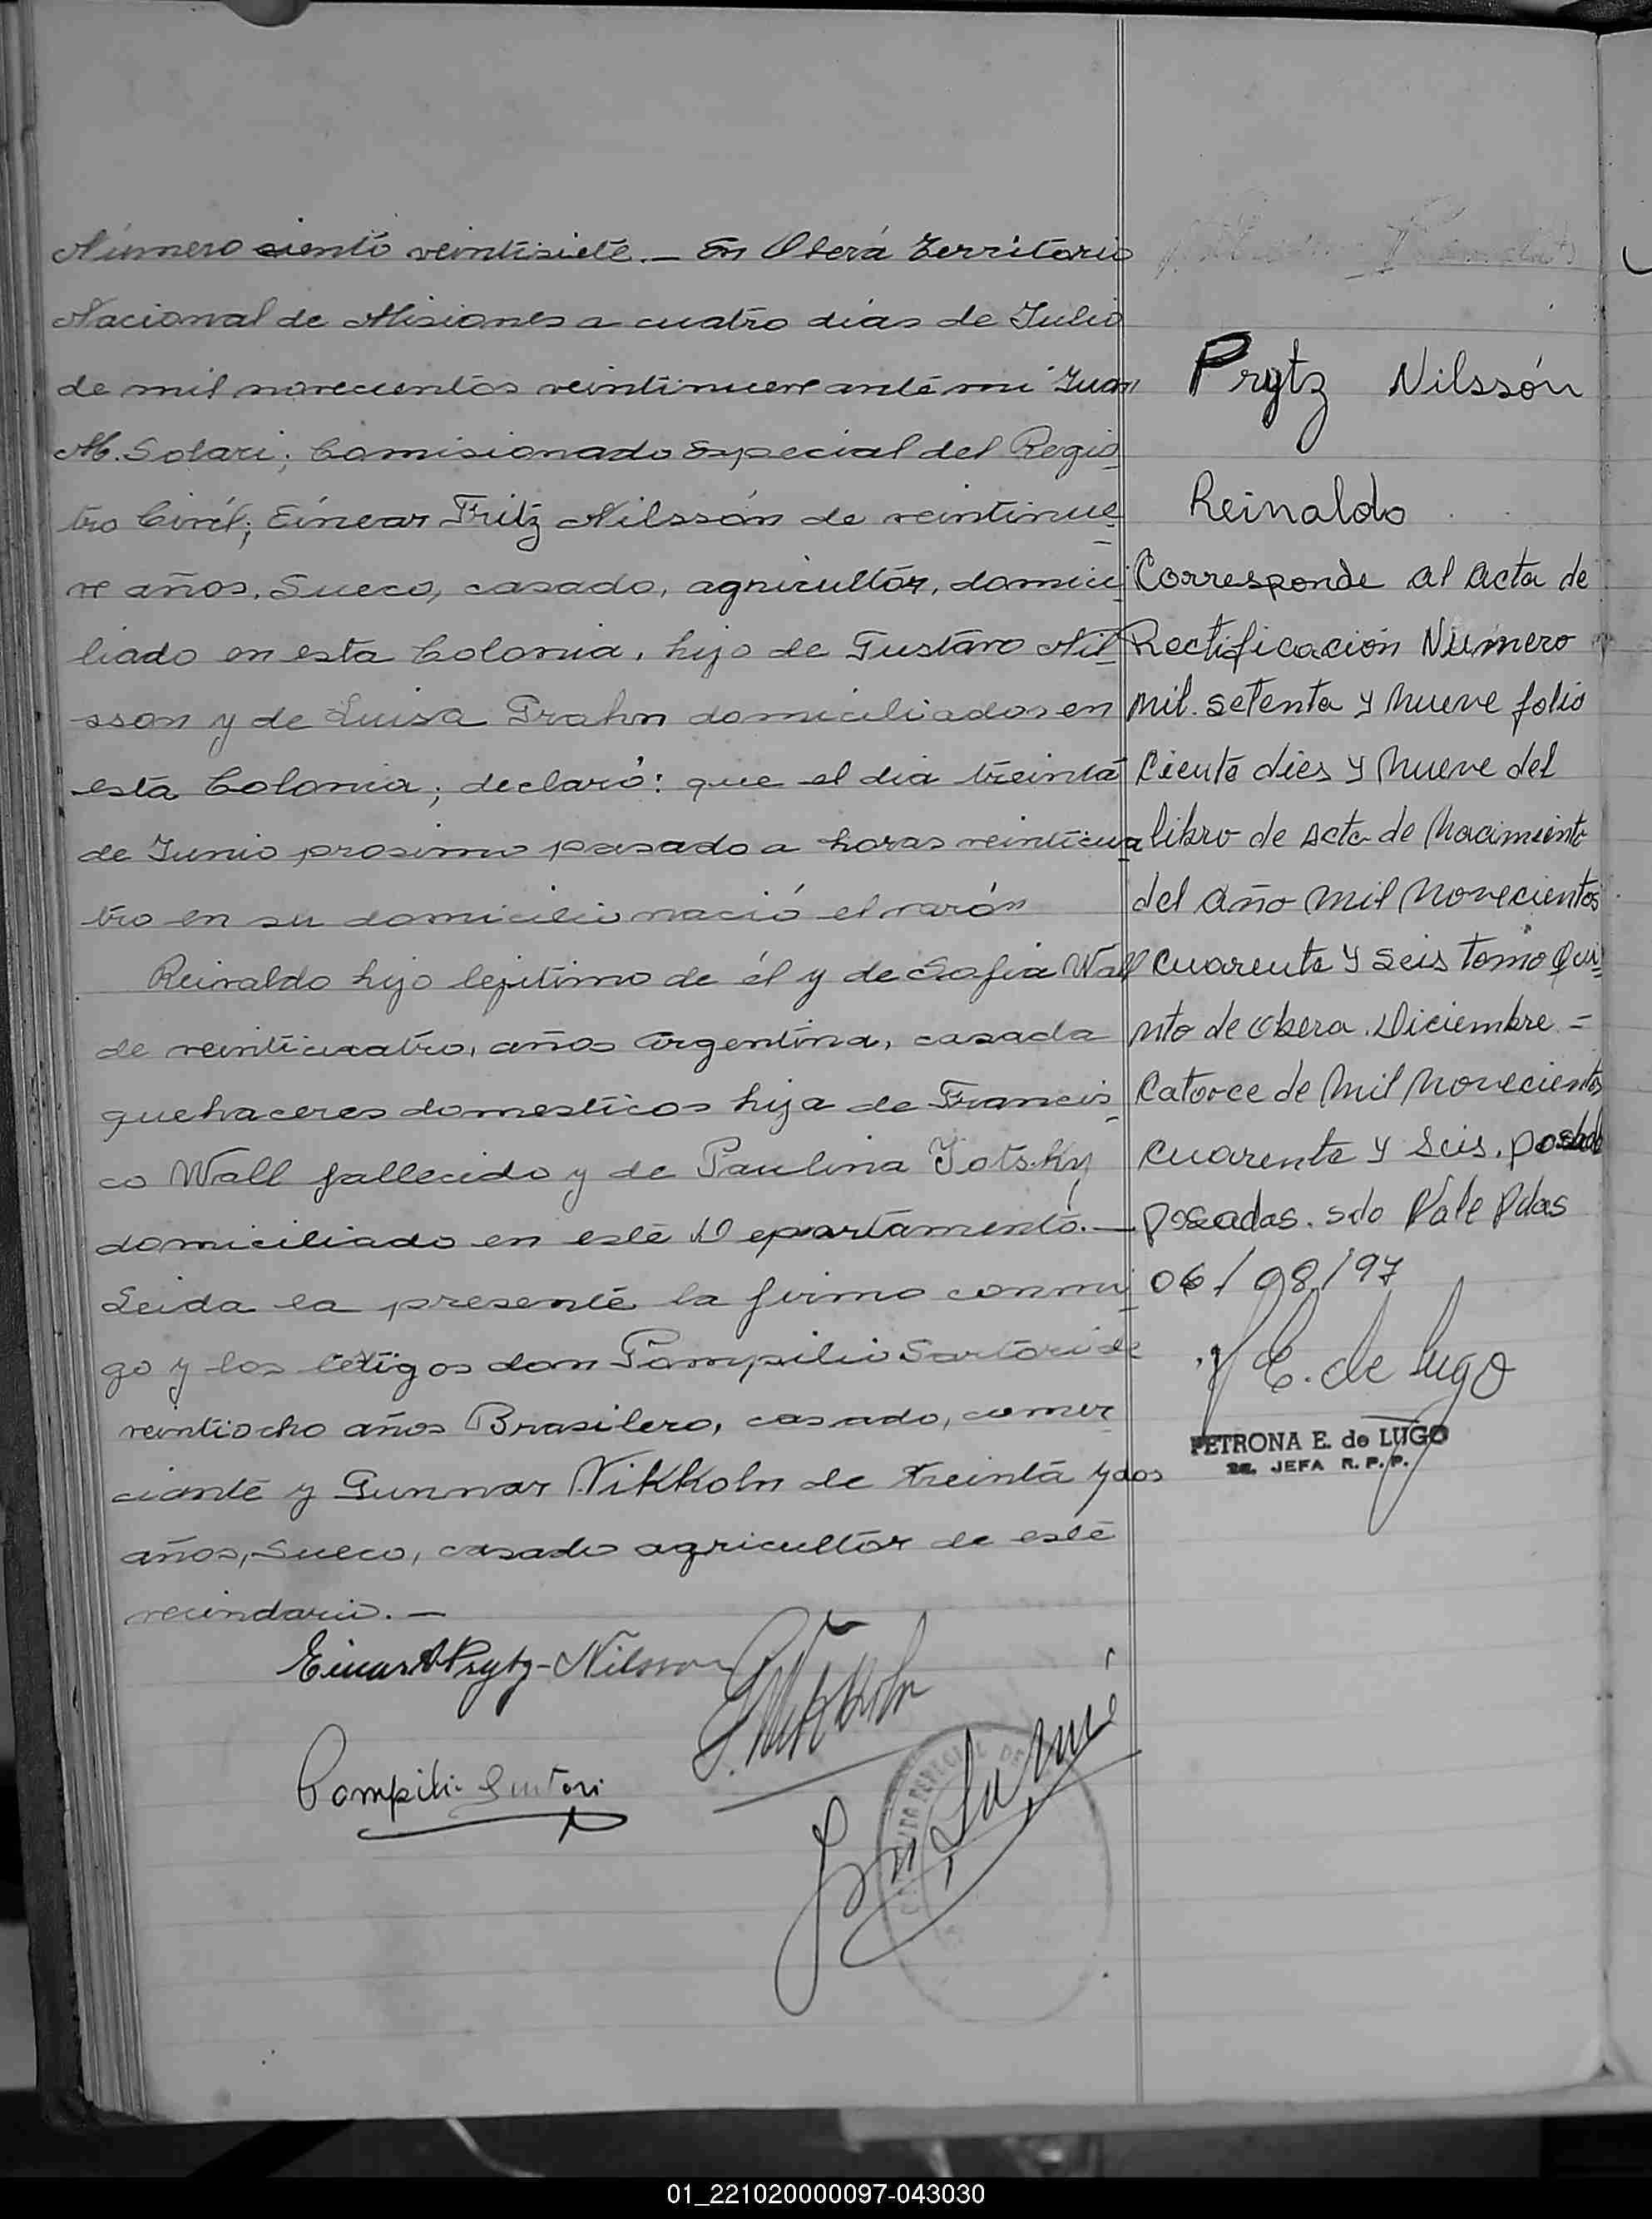 Número ciento veintisiete.— En Oberá Territorio
Nacional de Misiones a cuatro dias de Julio
de mil novecientos veintinueve ante mi Juan
M. Solari; Comisionado Especial del Regis
tro Civil; Einear Fritz Nilssón de veintinue
ve años, Sueco, casado, agricultor, domici
liado en esta Colonia, hijo de Gustavo Nil
sson y de Luisa Grahn domiciliados en
esta Colonia; declaró: que el dia treinta
de Junio prosimo pasado a horas veinticua
tro en su domicilio nació el varón
Reinaldo hijo lejitimo de él y de Sofia Wall
de veinticuatro, años Argentina, casada
quehaceres domesticos hija de Francis
co Wall fallecido y de Paulina Jotsky
domiciliado en este Departamento.—
Leida la presente la firmo conmi
go y los tetigos don Pompilio Sartori de
veintiocho años Brasilero, casado, comer
ciante y Gunnar Vikkoln de treinta y dos
años, Sueco, casado agricultor de este
vecindario.—
Einar A Prytz-Nilsson
G. Vikkoln
Pompili Sartori
Prytz Nilssón
Reinaldo
Corresponde al acta de
Rectificación Número
mil. setenta y nueve folio
Ciento dies y nueve del
libro de Acta de Nacimiento
del año mil novecientos
cuarenta y seis tomo Qui
nto de Obera. Diciembre =
Catorce de mil novecientos
cuarenta y seis.
posadas. sdo Vale Pdas
06/08/97
E. de Lugo
PETRONA E. de LUGO
2a. JEFA R. P. P.
01_221020000097-043030